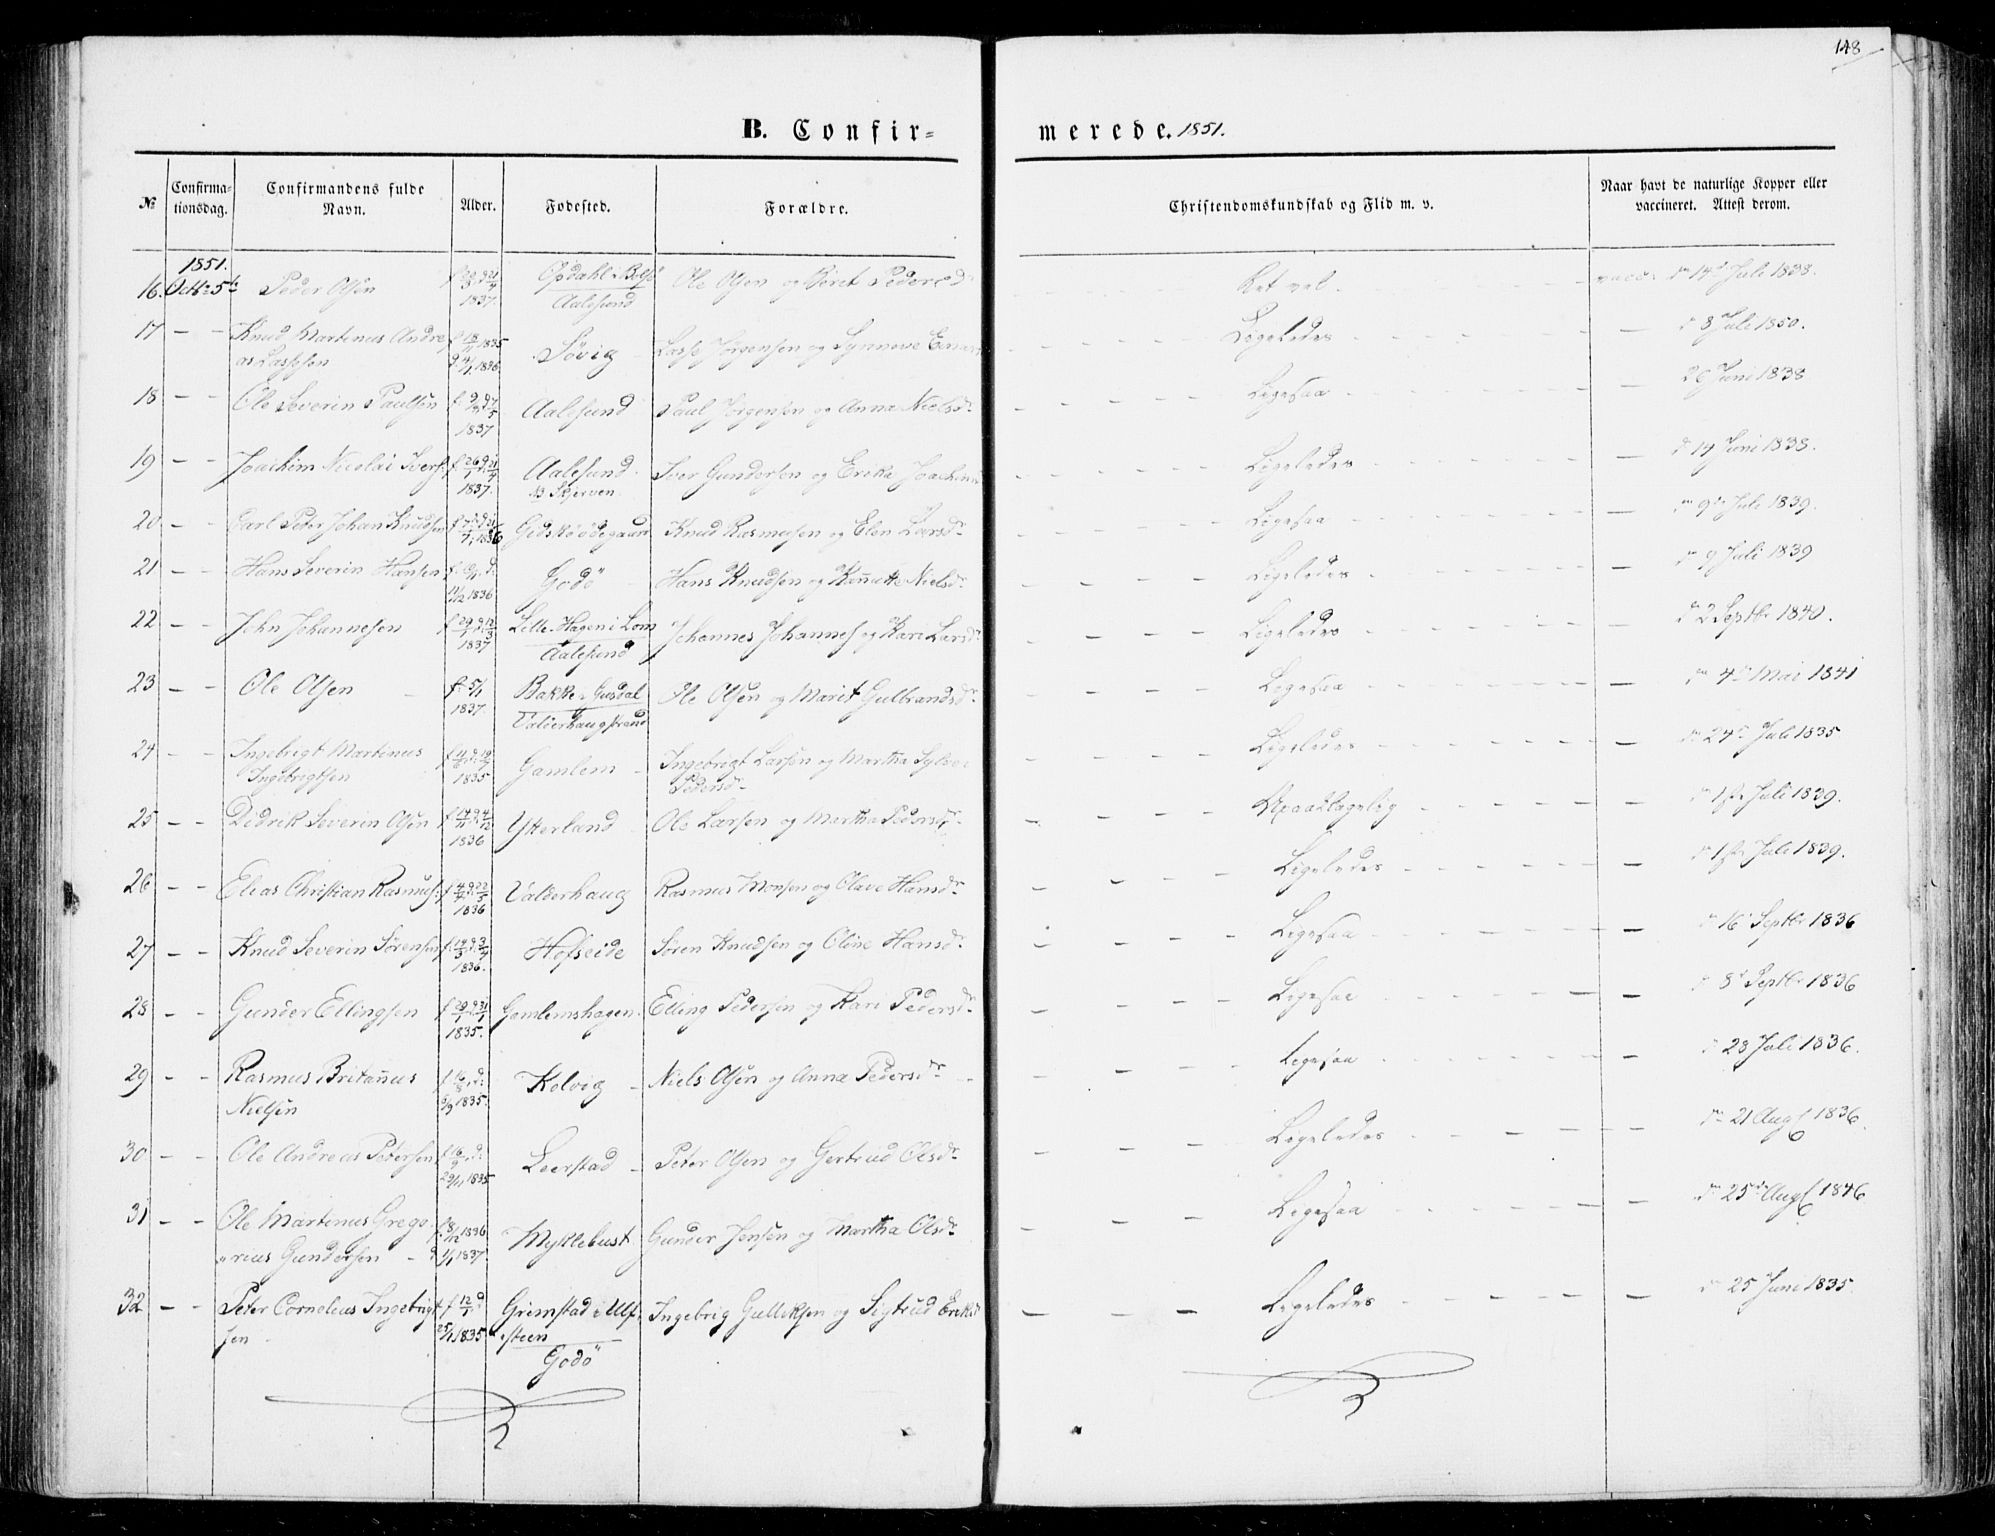 148
B. Confirmerede. 1851.
№ Confirmationsdag. Confirmandens fulde Navn. Alder. Fødested. Forældre. Christendomskundskab og Flid m. v. Naar havt de naturlige Kopper eller vaccineret. Attest derom.
1851.
16. Octbr 5te Peder Olsen 1837. Opdahl Aalesund Ole Olsen og Berit Pedersdr Ret vel. vacc: dn 14de Juli 1838.
17 – – Knud Martinus Andreas Lassesen f. 1835 d. 1836 Søvig Lasse Jørgensen og Synneve Ligeledes – d 3 Juli 1850.
18 – – Ole Severin Paulsen 1837 Aalesund Paul Jørgensen og Anna Nielsdr Ligesaa 26 Juni 1838
19 – – Joachim Nicolai Ivers. 1837. Aalesund Iver Gundersen og Erika Joachims Ligeledes d 14 Juni 1838.
20 – – Carl Peter Johan Knudsen 1836 Gidskeødegaard Knud Rasmussen og Elen Larsdr Ligesaa – dn 9de Juli 1839.
21 – – Hans Severin Hansen 1836 Godø Hans Knudsen og Nielsdr Ligeledes – dn 9 Juli 1839
22 – – John Johannesen 1837 Lille Hagen i Lom Aalesund Johannes Johannes og Kari Larsdr Ligeledes – dn 2 Septbr 1840.
23 – – Ole Olsen f. 5/1 1837. Bakke Valderhaugstrand Ole Olsen og Marit Gulbrandsdr Ligesaa – dn 4de Mai 1841
24 – – Ingebrigt Martinus Ingebrigtsen 1835 Gamlem Ingebrigt Larsen og Martha Pedersdr Ligeledes – dn 24de Juli 1835
25 – – Didrik Severin Olsen 1836 Ytterland Ole Larsen og Martha Pedersdr Upaaklagelig – dn 1ste Juli 1839.
26 – – Elias Christian Rasmus: 1836 Valderhaug Rasmus Monsen og Olave Hansdr Ligeledes – dn 1ste Juli 1839.
27 – – Knud Severin Sørensen 1836. Hofseide Søren Knudsen og Oline Hansdr Ligesaa – dn 16 Septbr 1836
28 – – Gunder Ellingsen 1835. Gamlemshagen Elling Pedersen og Kari Pedersdr Ligesaa – d 8de Septbr 1836
29 – – Rasmus Britanus Nielsen 1835. Kolvig Niels Olsen og Anna Pedersdr Ligesaa – d 28 Juli 1836.
30 – – Ole Andreas Petersen 1835 Leerstad Peter Olsen og Gertrud Olsdr Ligeledes – dn 21 Aug 1836.
31 – – Ole Martinus Gregorius Gundersen f. 8/12 1836 d. 1/1 1837. Myklebust Gunder Jensen og Martha Olsdr Ligesaa – dn 25de Aug 1846
32 – – Peter Cornelius Ingebrigtsen 1835 Grimstad i Ulfsteen Godø Ingebrig Gulliksen og Sigtrud Eriksd Ligeledes – d 25 Juni 1835.